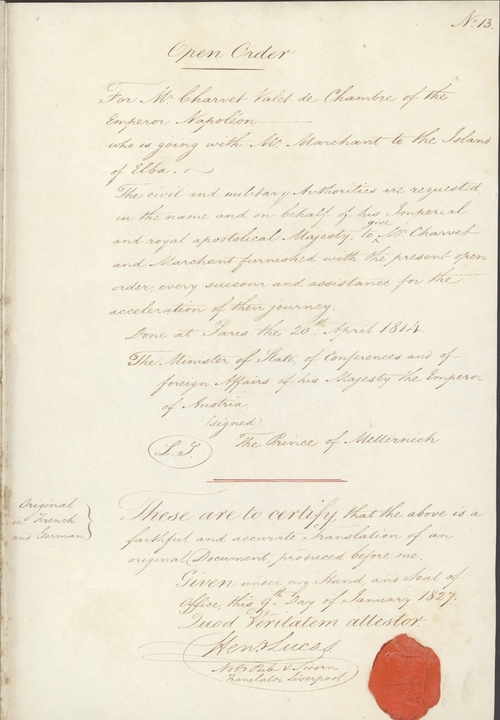 No. 13.
Open Order
For Mr. Charvet Valet de Chambre of the
Emperor Napoléon
who is going with Mr. Marchant to the Island
of Elba.
The civil and military Authorities are requested
in the name and on behalf of his Imperial
and royal apostolical Majesty, to give Mr. Charvet
and Marchant furnished with the present open
order, every succour and assistance for the
acceleration of their journey.
Done at Paris the 20th April 1814.
The Minister of State, of Conferences and of
foreign Affairs of his Majesty the Emperor
of Austria
(signed)
L. S. The Prince of Metternich
Original
in French
and German
These are to certify, that the above is a
faithful and accurate Translation of an
original Document, produced before me.
Given under my Hand and Seal of
Office, this 9th Day of January 1827.
Quod Veritatem attestor
Heny Lucas
Noty Pub & Sworn
Translator Liverpool